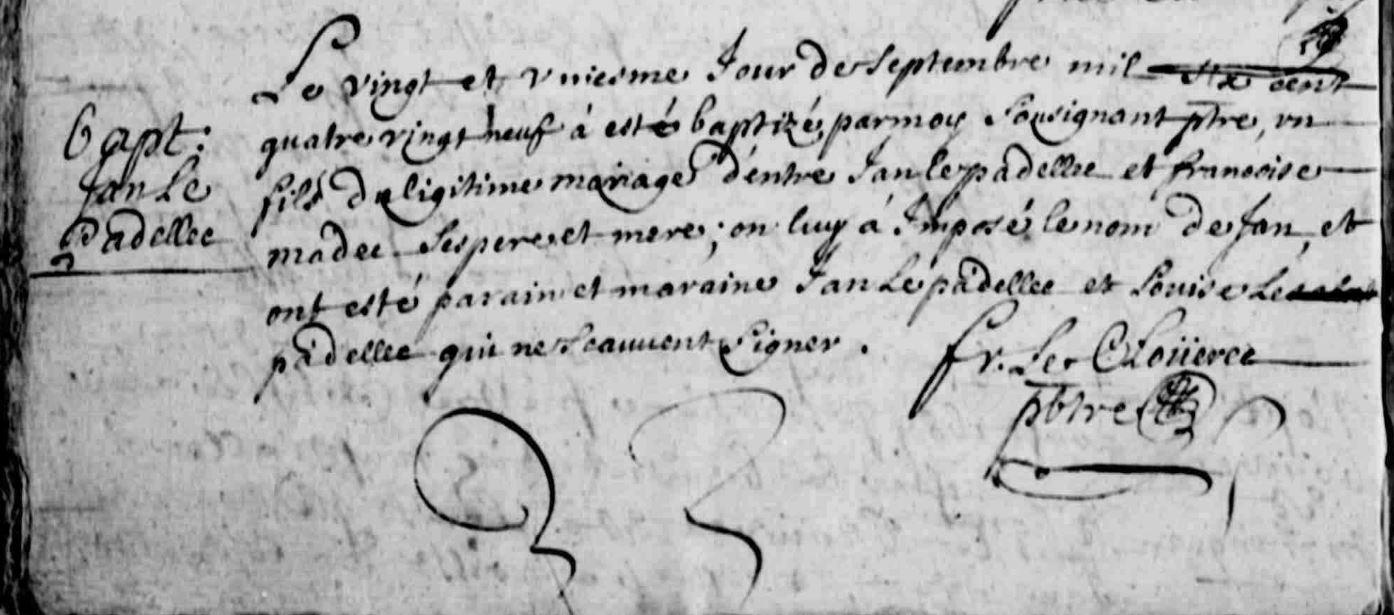 Le vingt et vniesme Jour de Septembre mil six cent
quatre vingt neuf à esté baptizé, par moy Sousignant ptre, vn
bapt:
Jan Le
padellec
fils du ligitime mariage d'entre Jan le padellec et francoise
madec Ses pere et mere; on luy à Imposé le nom de Jan, et
ont esté parain et maraine Jan Le padellec et Louise Le
padellec qui ne Scauuent Signer.
fr. Le Clouerec
pbtre